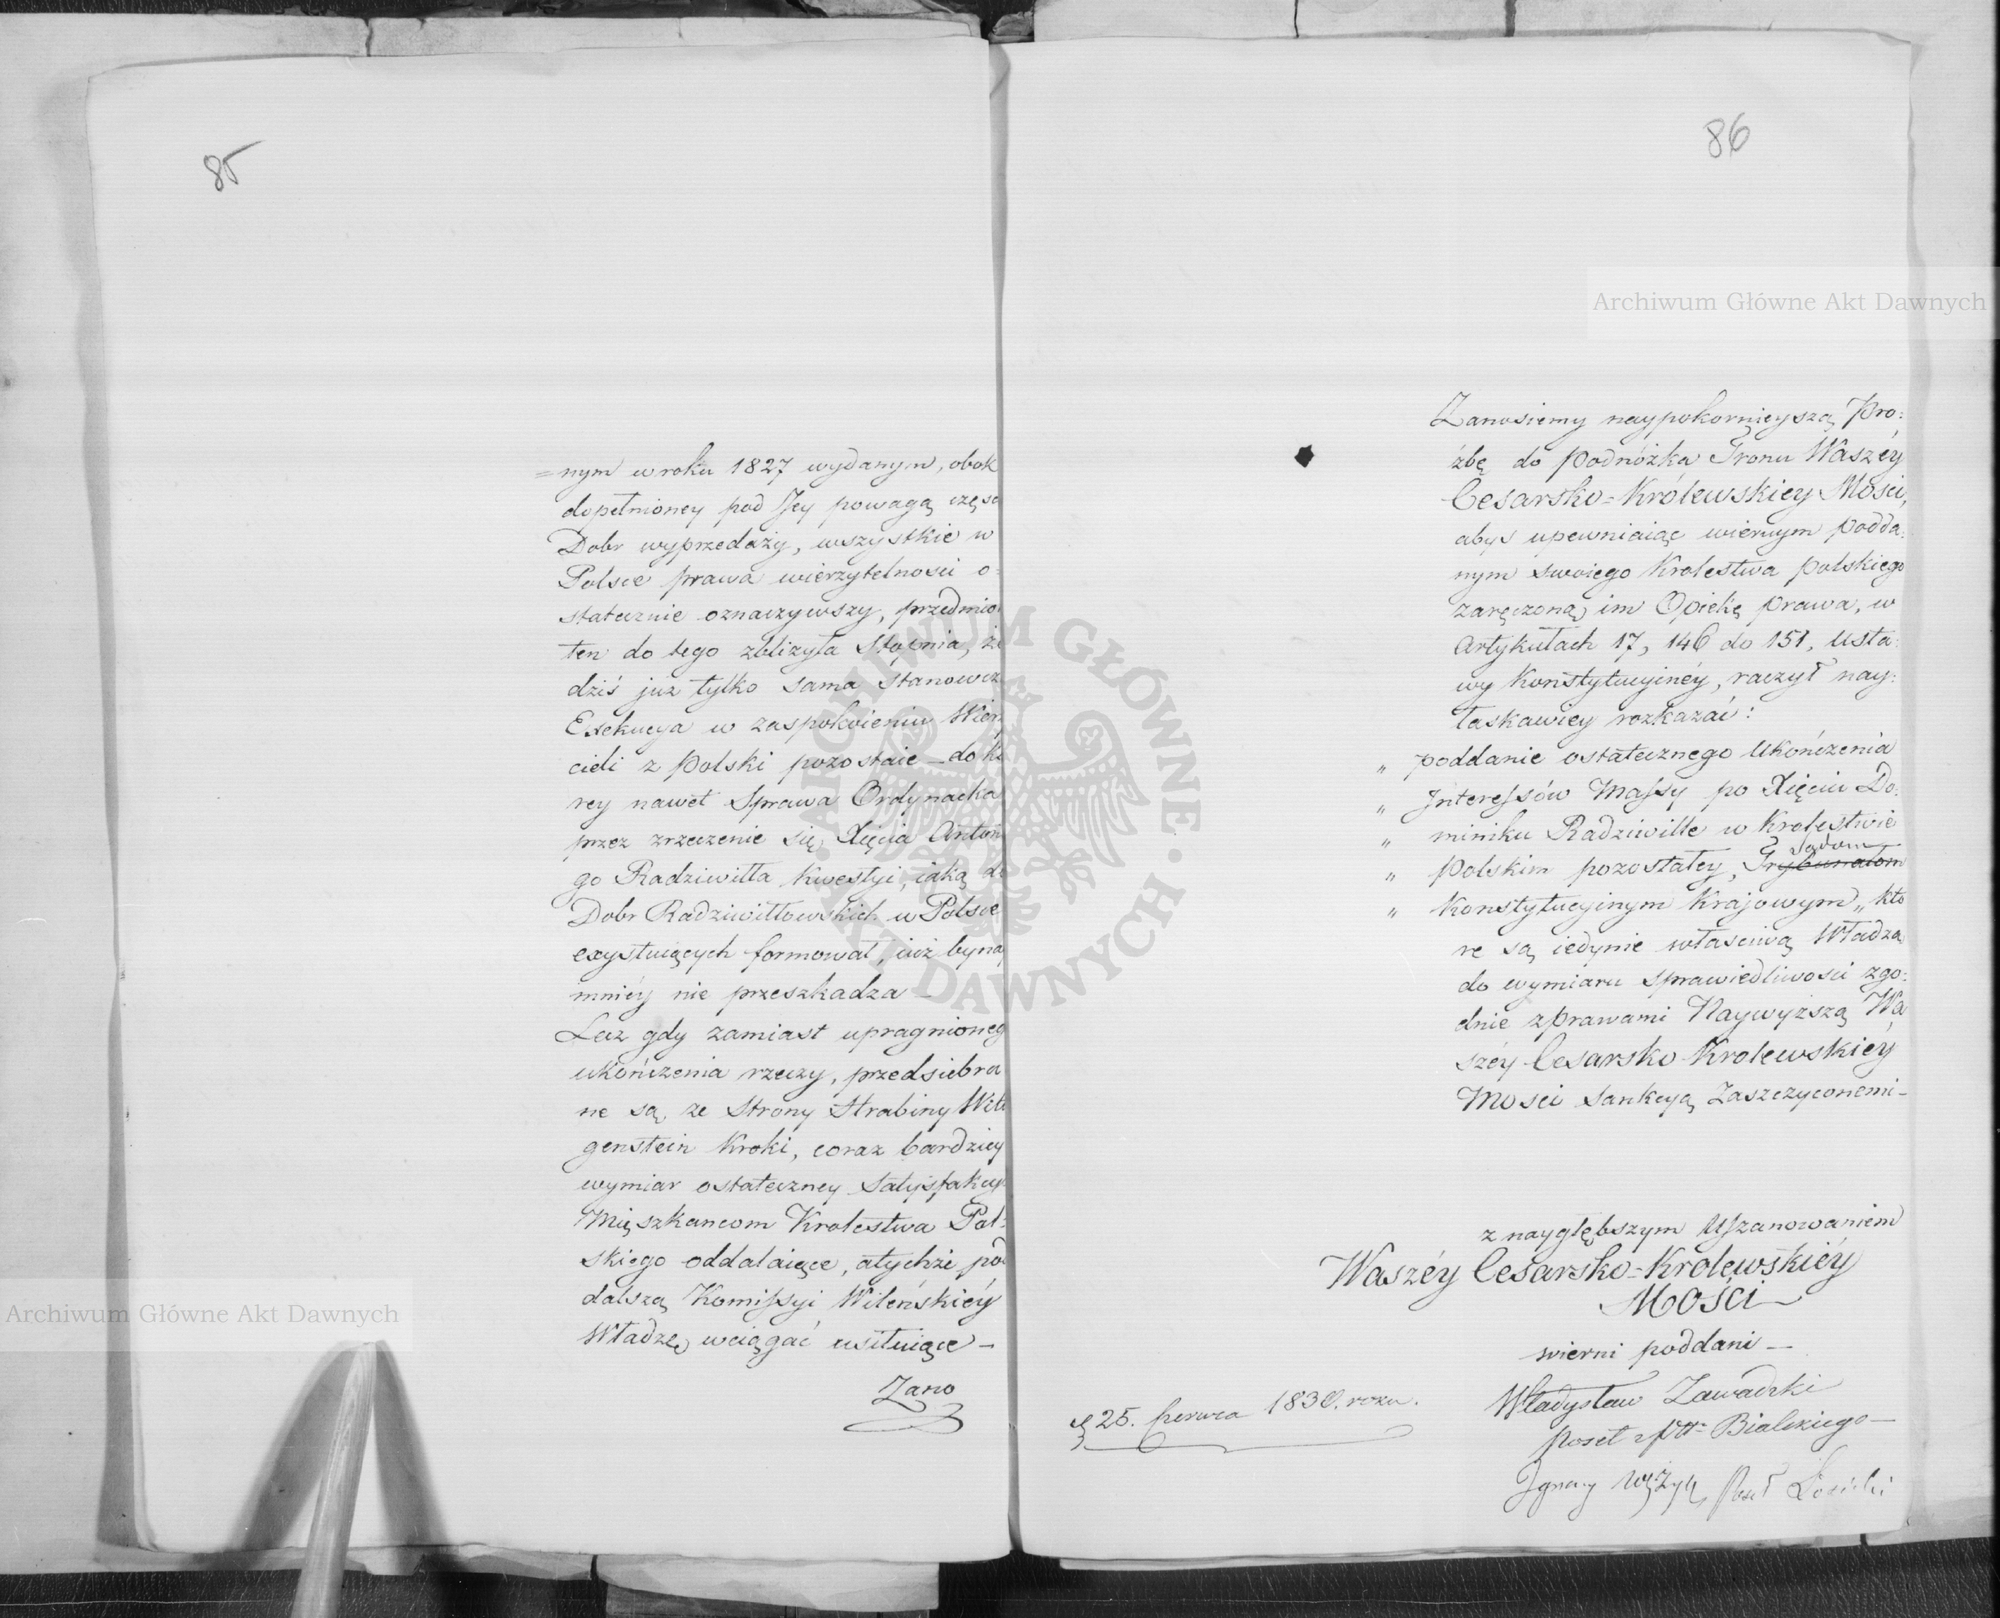 85
=nym w roku 1827 wydanym, obok
dopełnioney pod Jey powagą częśc
Dobr wyprzedaży, wszystkie w
Polsce prawa wierzytelnosci o-
statecznie oznaczywszy, przedmio
ten do tego zbliżyła Stopnia, że
dziś juz tylko sama stanowcz
Exekucya w zaspokoieniu Wierz
cieli z Polski pozostaie – do kt
rey nawet Sprawa Ordynacka
przez zrzeczenie się Xięcia Anton
go Radziwiłła kwestyi, iaką do
Dobr Radziwiłłowskich w Polsce
exystuiących formował, iuż bynay
mniéy nie przeszkadza –
Lecz gdy zamiast upragnioneg
ukończenia rzeczy, przedsiebra
ne są ze Strony Hrabiny Witt
genstein Kroki, coraz bardziey
wymiar ostateczney Satysfakcyi
Mięszkancom Krolestwa Pol-
skiego oddalaiące, a tychże pod
dalszą Komissyi Wileńskiéy
Władzę wciągać usiłuiące –
Zano
86
Zanosiemy naypokornieyszą Pro:
źbę do Podnóżka Tronu Waszéy
Cesarsko=Królewskiey Mosci,
abyś upewniaiąc wiernym podda:
nym swoiego Krolestwa Polskiego
zaręczoną im Opiekę prawa, w
Artykułach 17, 146 do 151, Usta:
wy Konstytucyinéy, raczył nay:
łaskawiey rozkazać:
„ poddanie ostatecznego Ukończenia
„ Interessów Massy po Xięciu Do:
„ miniku Radziwille w Krolestwie
Sądom
„ Polskim pozostałey, Trybunałom
„ Konstytucyinym Krajowym„ kto
re są iedynie właściwą Władzą
do wymiaru sprawiedliwosci zgo:
dnie z prawami Naywyższą Wa
széy Cesarsko Krolewskiéy
Mosci Sankcyą Zaszczyconemi –
z naygłębszym Uszanowaniem
Waszéy Cesarsko=Krolewskiéy
Mości
wierni poddani –
25. Czerwca 1830. roku.
Władysław Zawadzki
Poseł z Pttu Bialskiego –
Ignacy Wężyk Poseł Łosicki
Archiwum Główne Akt Dawnych
Archiwum Główne Akt Dawnych
ARCHIWUM GŁÓWNE AKT DAWNYCH